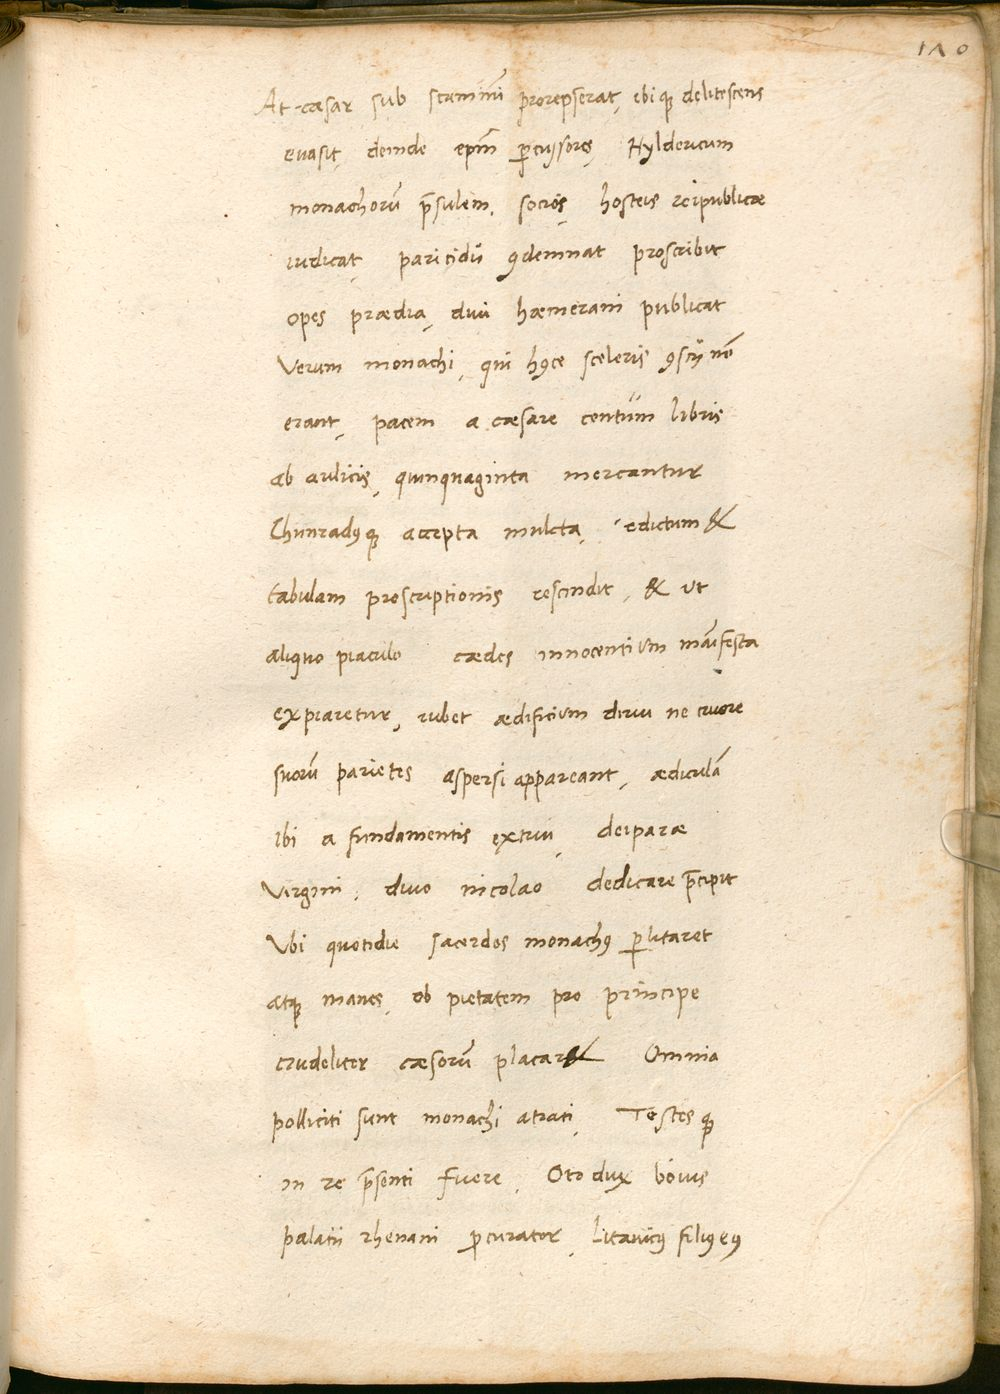 1Λ0
At cæsar sub scamnũ prorepserat, ibiqꝫ delitescens
euasit, deinde epm̃ ꝑcussores, Hyldericum
monachorũ p̃sulem, socios, hosteis reipublicæ
iudicat, paricidii ꝯdemnat proscribit
opes prædia, diui hæmerani publicat
Verum monachi, qui hꝰce sceleris ꝯscij nõ
erant, pacem a cæsare centum libris
ab aulicis, quinquaginta mercantur
Chunradꝰqꝫ accepta mulcta, edictum &
tabulam proscriptionis rescindit, & ut
aliquo piaculo cædes innocentium manifesta
expiaretur, iubet ædificium dirui ne cruore
suorũ parietes aspersi appareant, ædiculã
ibi a fundamentis extrui, deiparæ
Virgini, diuo nicolao dedicare p̃cipit
Vbi quotidie sacerdos monachꝰ ꝑlitaret
atqꝫ manes, ob pietatem pro principe
crudeliter cæsorũ placar& Omnia
polliciti sunt monachi atrati, Testesqꝫ
in re p̃senti fuere, Oto dux boius
palatii rhenani ꝓcurator, Litauicꝰ filiꝰ eiꝰ